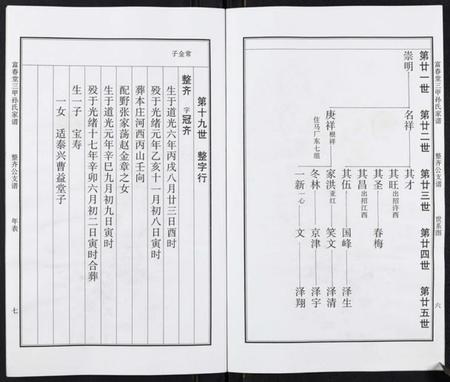 富春堂三甲孙氏家谱
整齐公支谱
世系图
六
第廿一世
第廿二世
第廿三世
第廿四世
第廿五世
崇明
名祥
其才
其旺 出招许西
其圣
春梅
其昌 出招江西
其伍
国峰
泽生
庚祥 根祥
住马厂东七组
家洪 亚红
笑文
泽清
冬林
京津
泽宇
一新 一心
文
泽翔
常金子
第十九世 整字行
整齐 字冠齐
生于道光六年丙戌八月廿三日酉时
殁于光绪元年乙亥十一月初八日寅时
葬本庄河西丙山壬向
配野张家荡赵金章之女
生于道光元年辛巳九月初九日寅时
殁于光绪十七年辛卯六月初二日寅时合葬
生一子 宝寿
一女 适泰兴曹益堂子
富春堂三甲孙氏家谱
整齐公支谱
年表
七